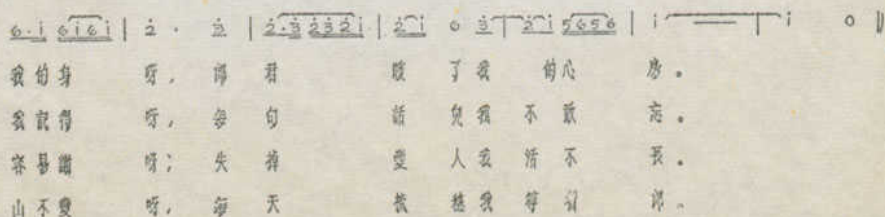 6·i̇ 6i̇6i̇ | 2̇ · 3̇ | 2̇·3̇ 2̇3̇2̇i̇ | 2̇i̇ 6 3̇ | 2̇i̇ 5656 | i̇ — | i̇ 0 ‖
我的身 呀, 郎 君 暖 了我 的心 房。
我記得 呀, 每 句 話 兒我 不敢 忘。
容易謝 呀; 失 掉 愛 人我 活不 長。
山不變 呀, 每 天 我等 郎。